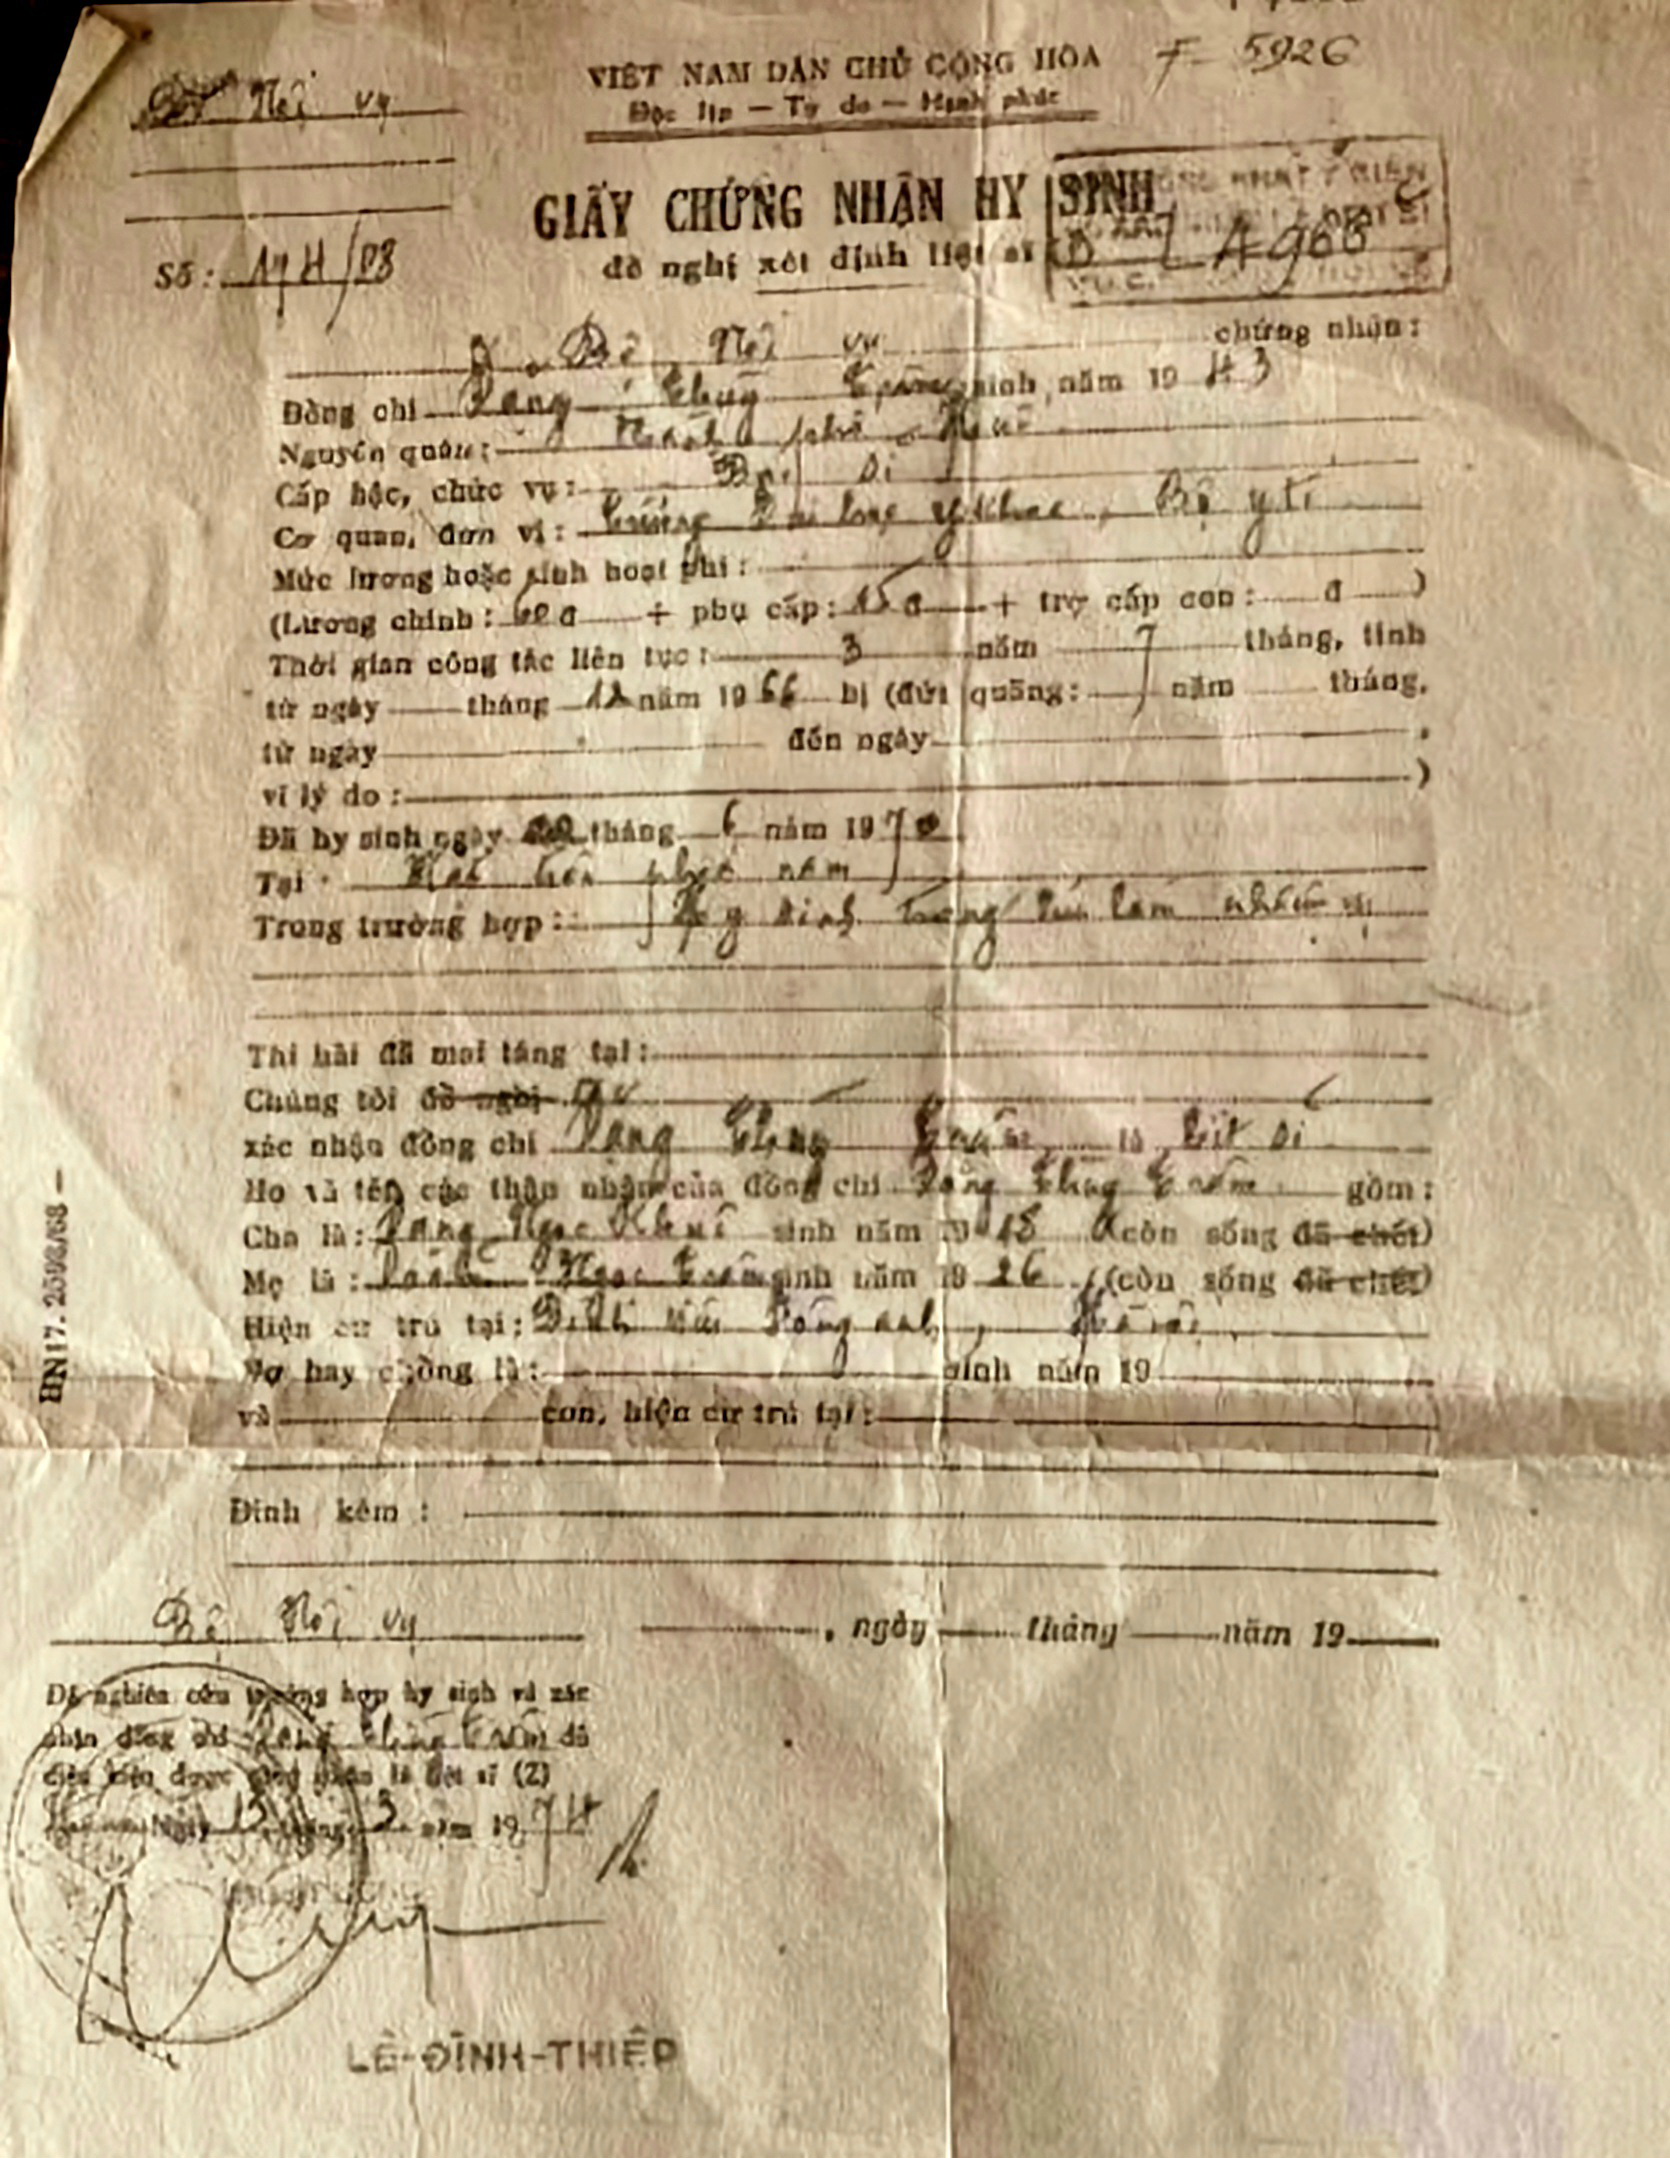 VIỆT NAM DÂN CHỦ CỘNG HÒA
F 5926
Bộ Nội vụ
Độc lập — Tự do — Hạnh phúc
GIẤY CHỨNG NHẬN HY SINH
đề nghị xét định liệt sĩ
Số:
Bộ Nội vụ chứng nhận:
Đồng chí Đặng Thùy Trâm sinh năm 19 43
Nguyên quán: Thành phố Huế
Cấp bậc, chức vụ: Bác sĩ
Cơ quan, đơn vị: Trường Đại học y khoa, Bộ y tế
Mức lương hoặc sinh hoạt phí:
(Lương chính: 60 đ + phụ cấp: 15 đ + trợ cấp con: đ )
Thời gian công tác liên tục: 3 năm 7 tháng, tính
từ ngày tháng 12 năm 19 66 bị (đứt quãng: năm tháng,
từ ngày đến ngày ,
vì lý do: )
Đã hy sinh ngày tháng 6 năm 19 70
Tại Mặt trận phía nam
Trong trường hợp: Hy sinh trong khi làm nhiệm vụ
Thi hài đã mai táng tại:
Chúng tôi đề nghị
xác nhận đồng chí Đặng Thùy Trâm là liệt sĩ
Họ và tên các thân nhân của đồng chí Đặng Thùy Trâm gồm:
Cha là: Đặng Ngọc Khuê sinh năm 19 (còn sống đã chết)
Mẹ là: Doãn Ngọc Trâm sinh năm 19 26 (còn sống đã chết)
Hiện cư trú tại: Đông anh, Hà nội
Vợ hay chồng là: sinh năm 19
và con, hiện cư trú tại:
Đính kèm:
HN17. 2598/68 —
Bộ Nội vụ
, ngày tháng năm 19
Đã nghiên cứu trường hợp hy sinh và xác
nhận đồng chí Đặng Thùy Trâm đủ
điều kiện được xác nhận là liệt sĩ (2)
ngày 13 tháng 3 năm 19 74
LÊ-ĐÌNH-THIỆP